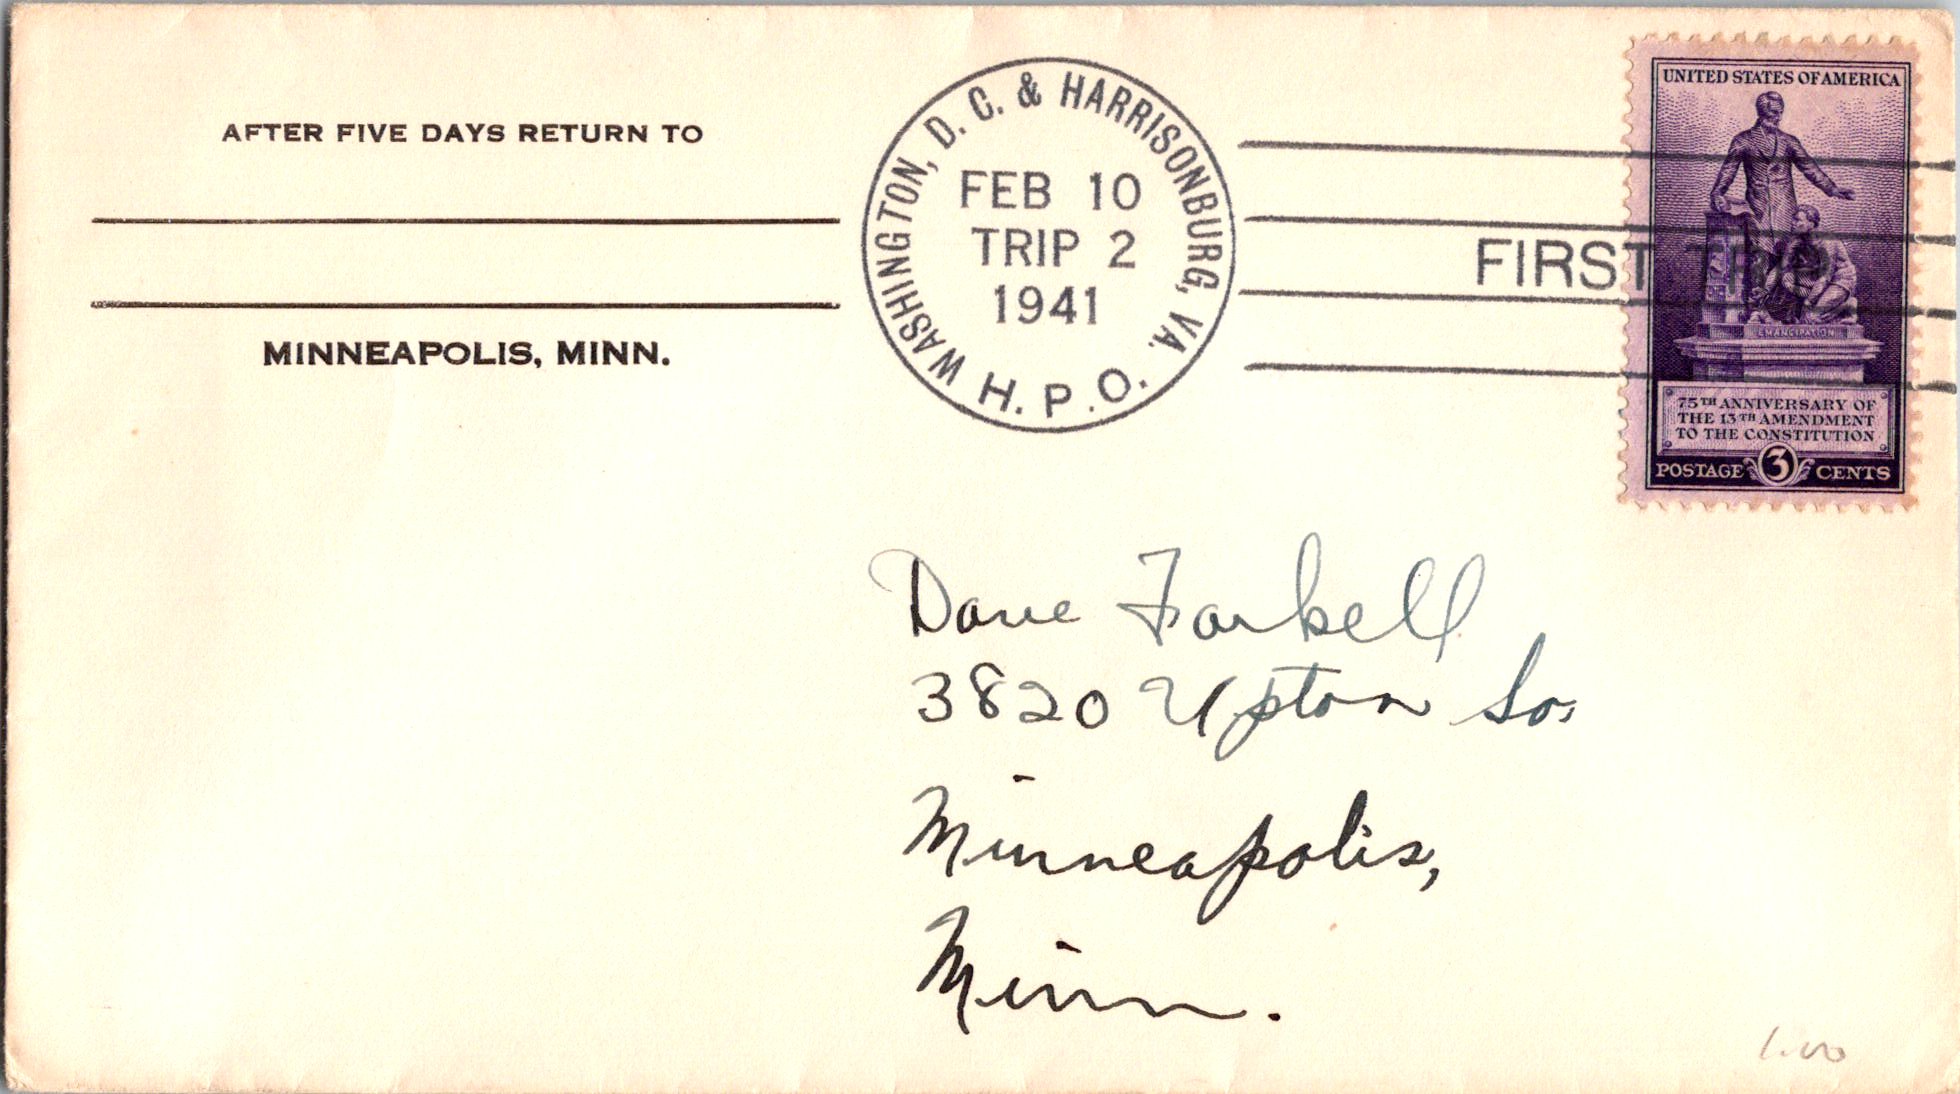 AFTER FIVE DAYS RETURN TO
MINNEAPOLIS, MINN.
WASHINGTON, D. C. & HARRISONBURG, VA.
FEB 10
TRIP 2
1941
H. P. O.
FIRST TRIP
UNITED STATES OF AMERICA
EMANCIPATION
75TH ANNIVERSARY OF
THE 13TH AMENDMENT
TO THE CONSTITUTION
POSTAGE 3 CENTS
Dave Farbell
3820 Upton So.
Minneapolis,
Minn.
1.00